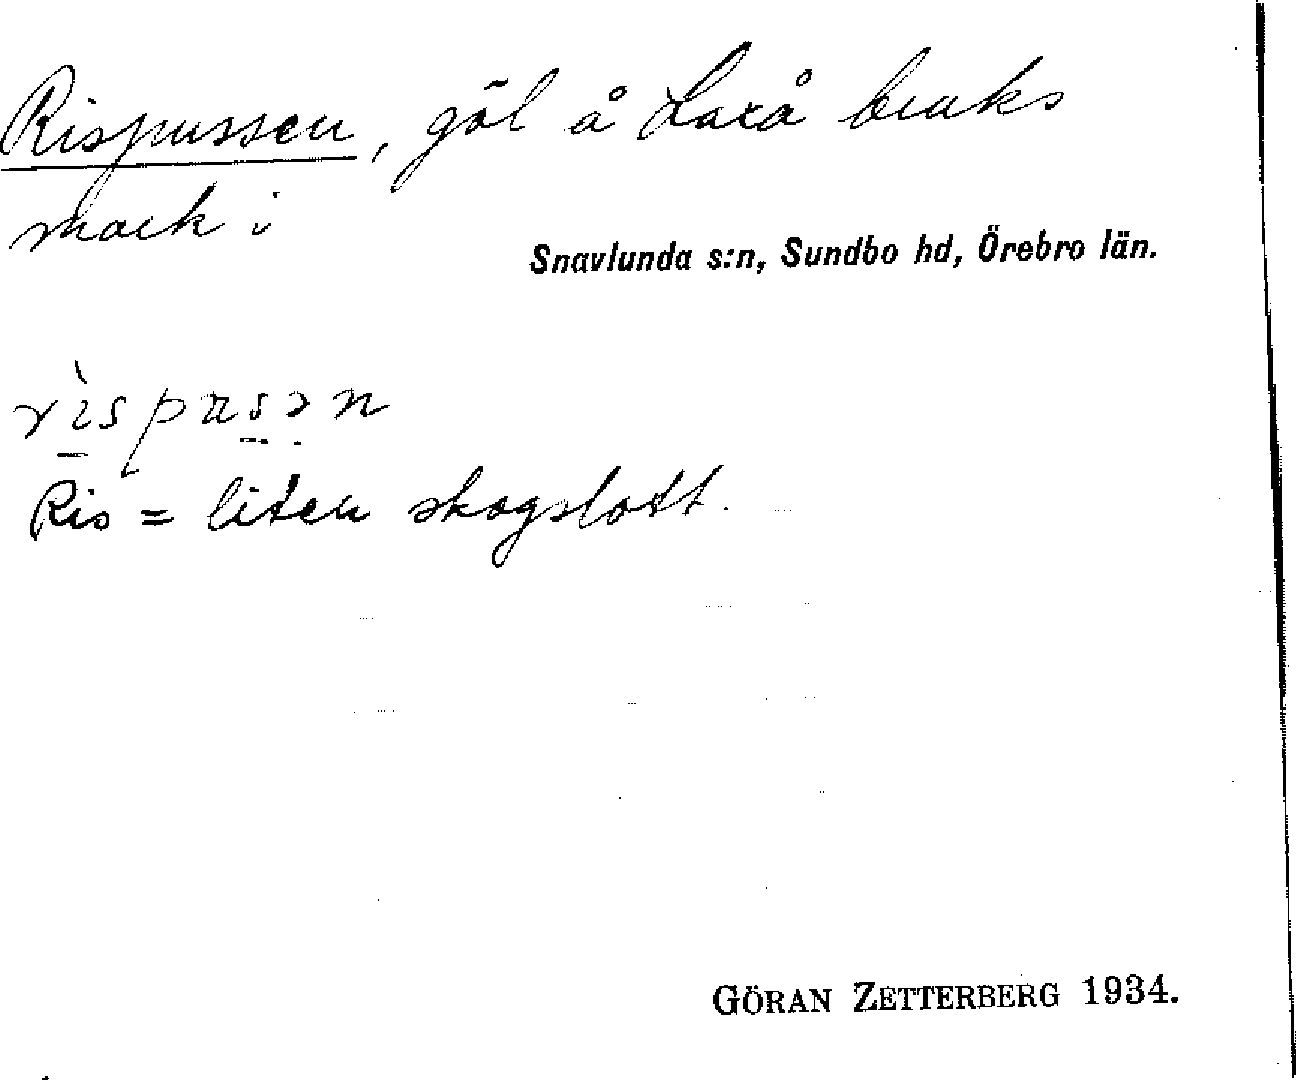 Rispussen, göl å Laxå bruks
mark i
Snavlunda s:n, Sundbo hd, Örebro län.
rìspusən
Ris = liten skogslott.
GÖRAN ZETTERBERG 1934.